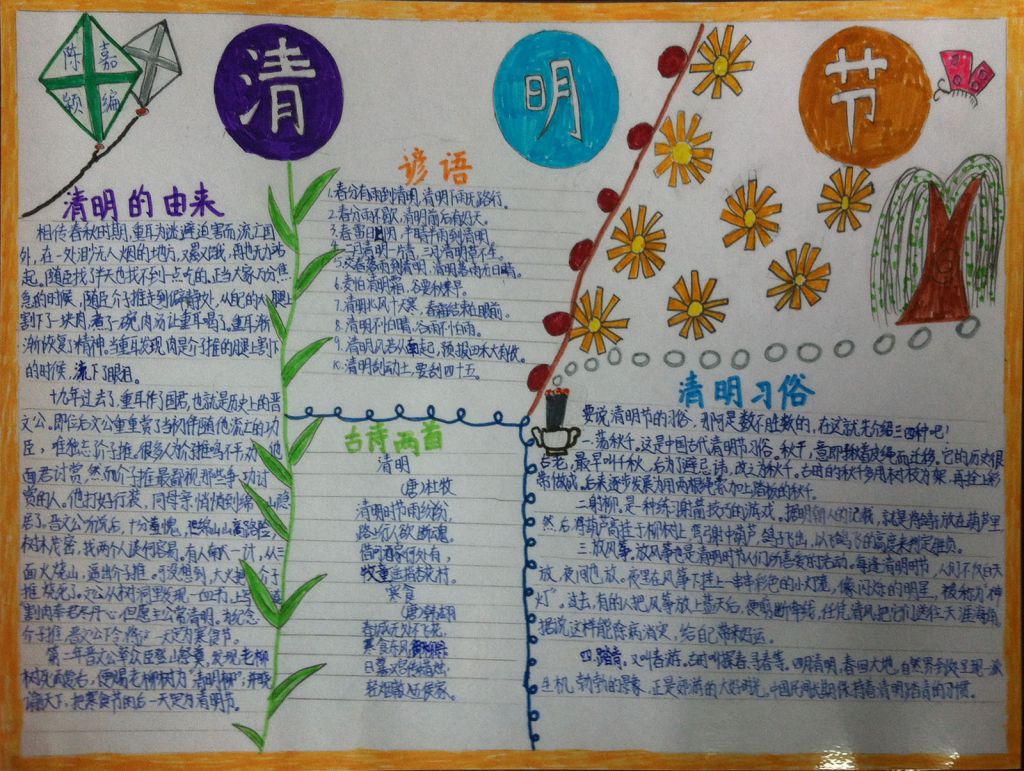 陈 嘉
颖 编
清 明 节
清明的由来
相传春秋时期,重耳为逃避迫害而流亡国
外,在一处渺无人烟的地方,又累又饿,再也无力站
起。随臣找了半天也找不到一点吃的,正当大家万分焦
急的时候,随臣介子推走到僻静处,从自己的大腿上
割下一块肉,煮了一碗肉汤让重耳喝了,重耳渐
渐恢复了精神。当重耳发现肉是介子推的腿上割下
的时候,流下了眼泪。
十九年过去了,重耳作了国君,也就是历史上的晋
文公。即位后文公重重赏了当初伴随他流亡的功
臣,唯独忘了介子推。很多人为介子推鸣不平,劝他
面君讨赏,然而介子推最鄙视那些争功讨
赏的人。他打好行装,同母亲悄悄到绵山隐
居了。晋文公听说后,十分羞愧,
树木茂密,找两个人谈何容易,有人献一计,从三
面火烧山,逼出介子推。
割肉奉君尽丹心,但愿主公常清明。为纪念
介子推,晋文公下令
第二年晋文公率众臣登山祭奠,发现老柳
树死而复活,便赐老柳树为“清明柳”,并晓
谕天下,把寒食节的后一天定为清明节。
谚语
1.春分有雨到清明,清明下雨无路行。
2.春分雨不歇,清明前后有好天。
6.麦怕清明霜,谷要秋来旱。
7.清明北风十天寒,春霜结束在眼前。
8.清明不怕晴,谷雨不怕雨。
10.清明刮动土,要刮四十五。
古诗两首
清明
(唐)杜牧
清明时节雨纷纷,
路上行人欲断魂。
借问酒家何处有,
牧童遥指杏花村。
寒食
(唐)韩翃
春城无处不飞花,
寒食东风
日暮汉宫传蜡烛,
轻烟散入五侯家。
清明习俗
要说清明节的习俗,那可是数不胜数的,在这就先介绍三四种吧!
一.荡秋千。这是中国古代清明节习俗。秋千,意即揪着皮绳而迁移。它的历史很
古老,最早叫千秋,后为了避忌讳,改之为秋千。古时的秋千多用树枝为架,再拴上彩
带做成。后来逐步发展为用两根绳索加上踏板的秋千。
二.射柳。是一种练习射箭技巧的游戏。据明朝人的记载,就是将鸽子放在葫芦里,
然后将葫芦高挂于柳树上,弯弓射中葫芦,鸽子飞出,以飞鸽飞的高度来判定胜负。
三.放风筝。放风筝也是清明时节人们所喜爱的活动。每逢清明时节,人们不仅白天
放,夜间也放。夜里在风筝下挂上一串串彩色的小灯笼,像闪烁的明星,被称为“神
灯”。过去,有的人把风筝放上蓝天后,便剪断牵线,任凭清风把它们送往天涯海角,
据说这样能除病消灾,给自己带来好运。
四.踏青。又叫春游,古时叫探春、寻春等。四月清明,春回大地,自然界到处呈现一派
生机勃勃的景象,正是郊游的大好时光。中国民间长期保持着清明踏青的习惯。